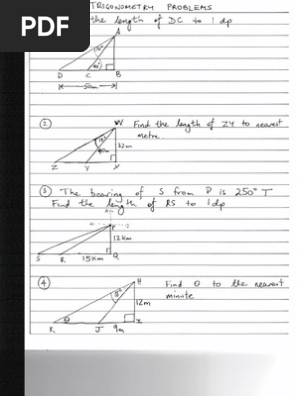 PDF
TRIGONOMETRY PROBLEMS
the length of DC to 1 dp
A
D C B
50m
② W Find the length of ZY to nearest
metre.
12m
Z Y X
③ The bearing of S from P is 250° T
Find the length of RS to 1dp
P
12km
S R 15km Q
④ H Find θ to the nearest
minute
12m
K θ J 9m I